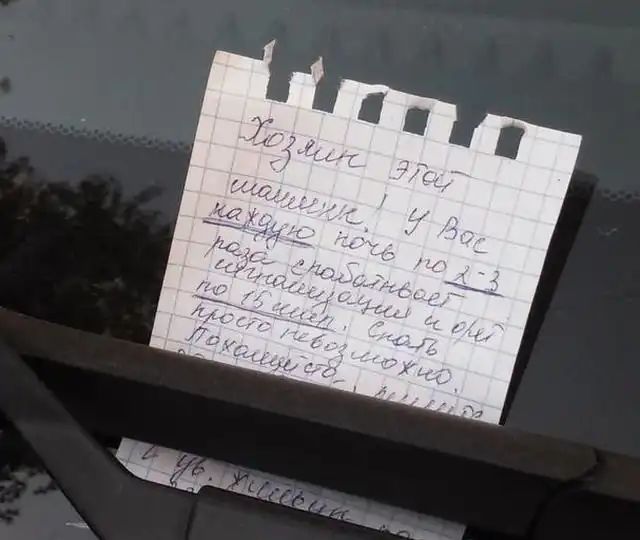 Хозяин этой
машины! у Вас
каждую ночь по 2-3
раза срабатывает
сигнализация и орёт
по 15 мин. Спать
просто невозможно.
Пожалуйста, решите
и ув. жильцы